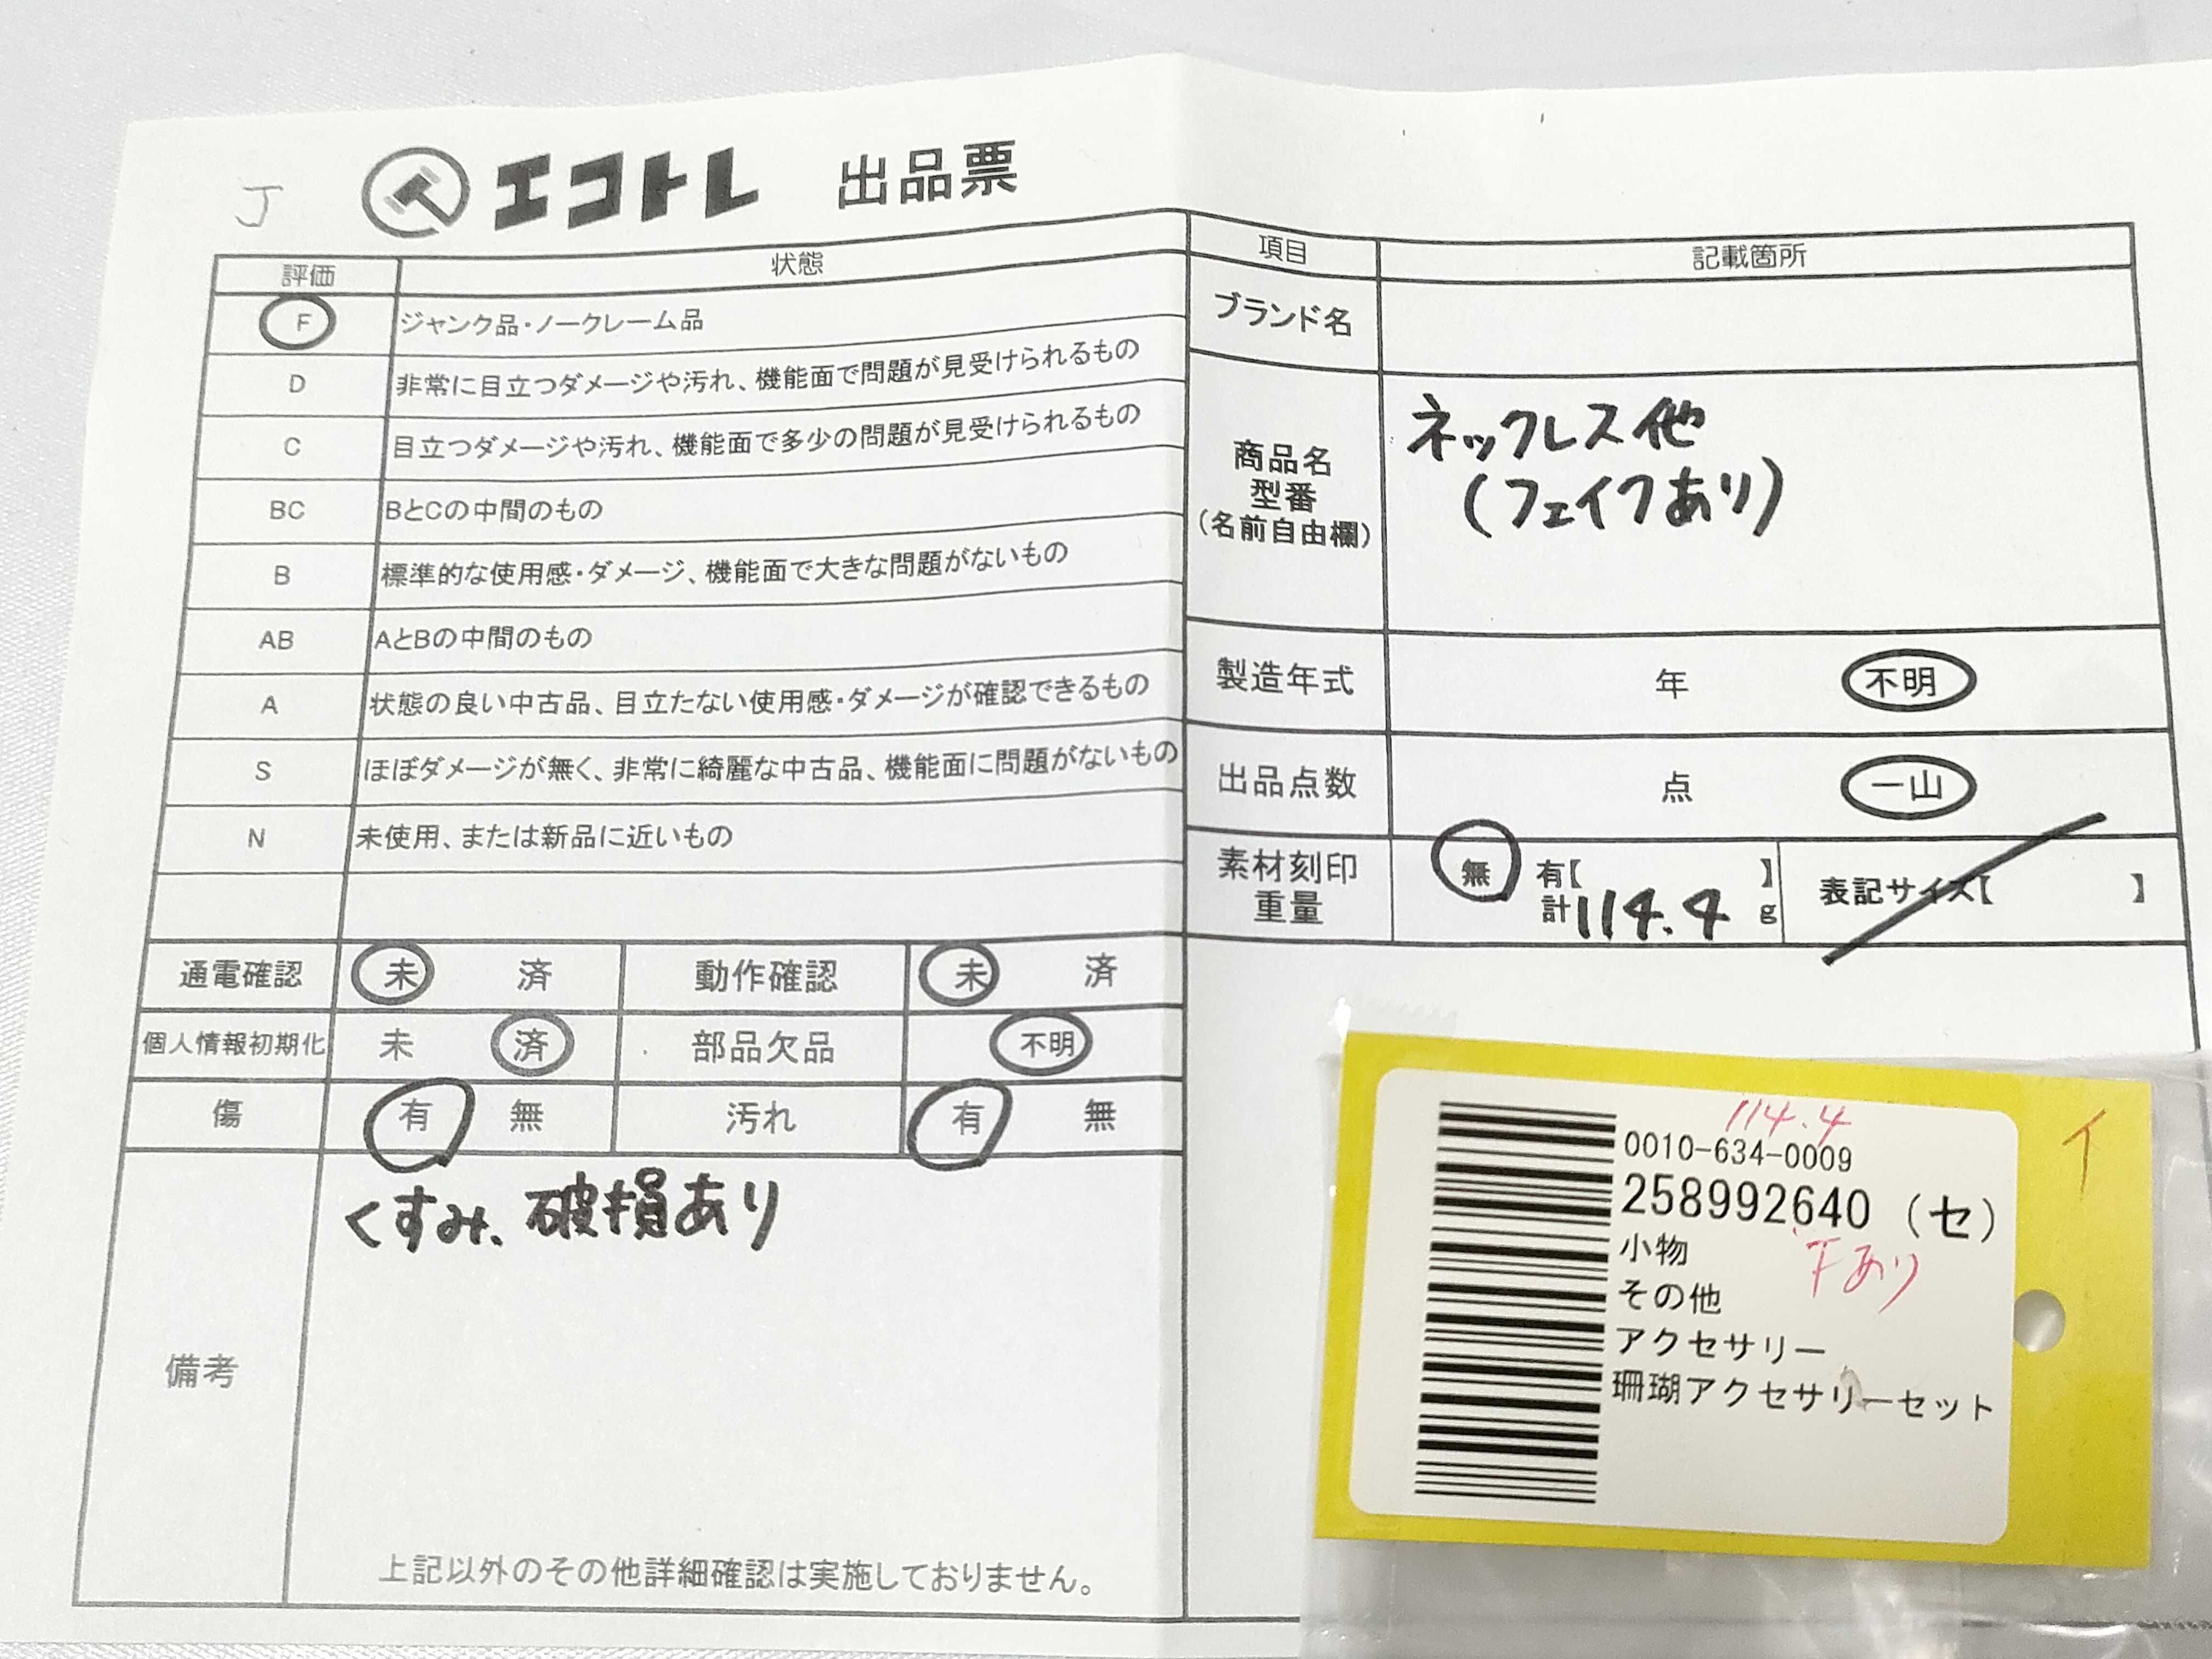 J
エコトレ 出品票
評価 状態
F ジャンク品・ノークレーム品
D 非常に目立つダメージや汚れ、機能面で問題が見受けられるもの
C 目立つダメージや汚れ、機能面で多少の問題が見受けられるもの
BC BとCの中間のもの
B 標準的な使用感・ダメージ、機能面で大きな問題がないもの
AB AとBの中間のもの
A 状態の良い中古品、目立たない使用感・ダメージが確認できるもの
S ほぼダメージが無く、非常に綺麗な中古品、機能面に問題がないもの
N 未使用、または新品に近いもの
通電確認 未 済 動作確認 未 済
個人情報初期化 未 済 部品欠品 不明
傷 有 無 汚れ 有 無
備考
くすみ、破損あり
上記以外のその他詳細確認は実施しておりません。
項目 記載箇所
ブランド名
商品名
型番
(名前自由欄)
ネックレス他
(フェイクあり)
製造年式 年 不明
出品点数 点 一山
素材刻印
重量
無 有【 】
計114.4 g
表記サイズ【 】
114.4
0010-634-0009
258992640 (セ)
小物
Fあり
その他
アクセサリー
珊瑚アクセサリーセット
イ